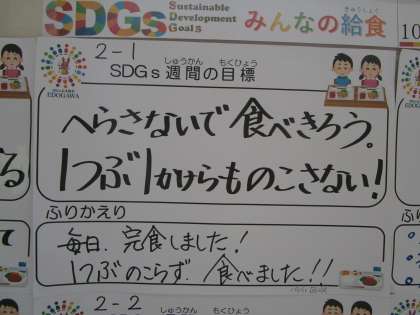 SDGs Sustainable Development Goals みんなの給食
きゅうしょく
10
2-1
しゅうかん もくひょう
SDGs週間の目標
EDOGAWA
へらさないで食べきろう。
1つぶ1かけらものこさない!
る
ふりかえり
毎日、完食しました!
1つぶのこらず、食べました!!
て
2-2
しゅうかん もくひょう